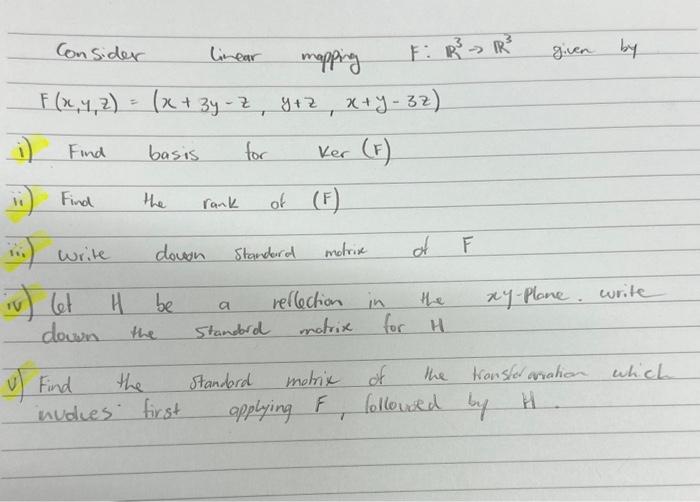 Consider linear mapping F: ℝ³ → ℝ³ given by
F(x,y,z) = (x + 3y - z, y+z, x+y-3z)
i) Find basis for Ker (F)
ii) Find the rank of (F)
iii) write down standard matrix of F
iv) let H be a reflection in the xy-plane. write
down the standard matrix for H
v) Find the standard matrix of the transformation which
involves first applying F, followed by H.